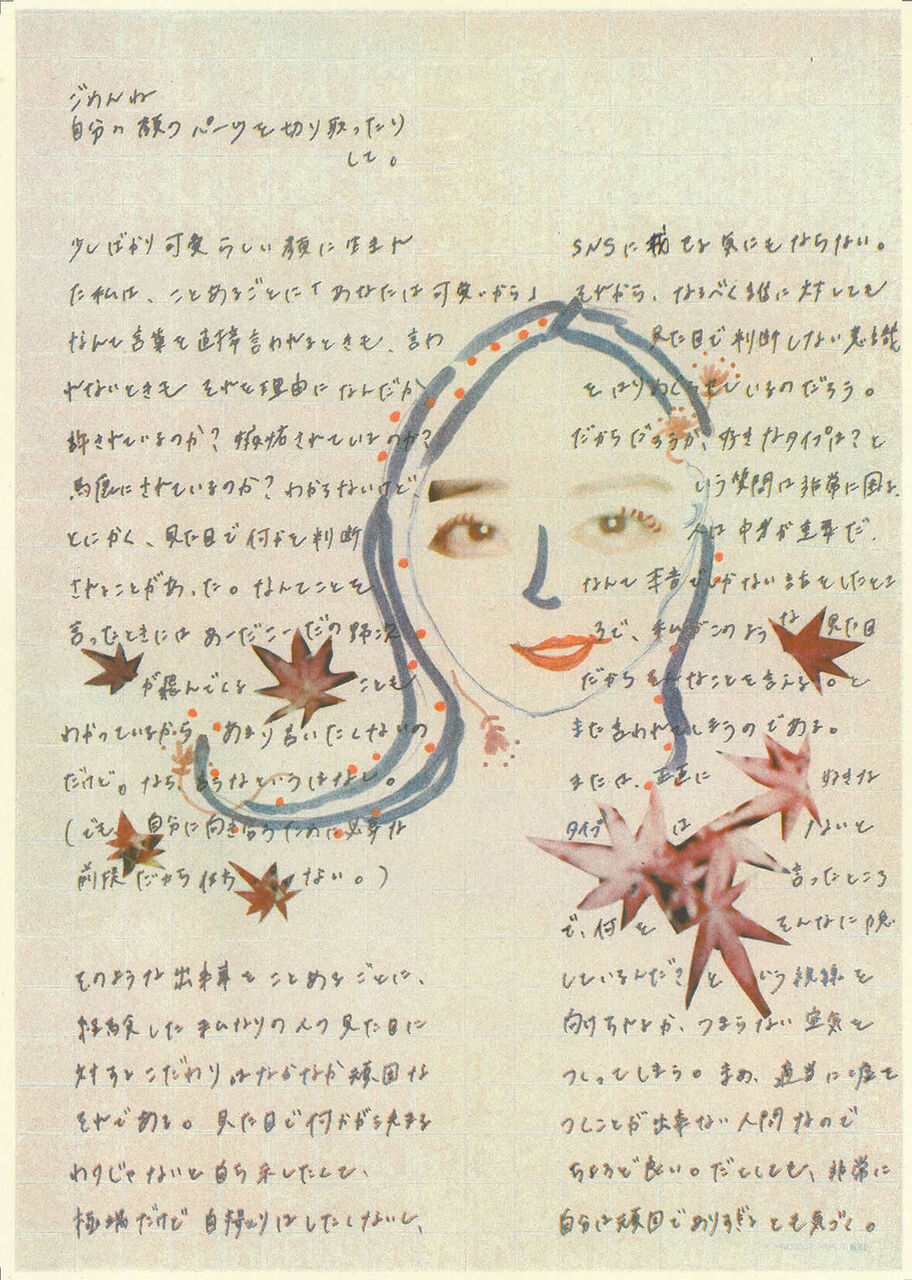 ごめんね
自分の顔のパーツを切り取ったり
して。
少しばかり可愛らしい顔に生まれ
た私は、ことあるごとに「あなたは可愛いから」
なんて言葉を直接言われるときも、言わ
れないときも それを理由に なんだか
許されているのか？嫉妬されているのか？
馬鹿にされているのか？わからないけど、
とにかく、見た目で何かを判断
されることがあった。なんてことを
言ったときには あーだこーだの野次
が飛んでくる ことも
わかっているから あまり言いたくないの
だけど。なら、どうなというはなし。
（でも、自分に向き合うために必要な
前提だから 仕方 ない。）
そのような出来事をことあるごとに、
経験した私なりの人の見た目に
対するこだわりはなかなか頑固な
それである。見た目で何かが決まる
わけじゃないと自ら示したくて、
極端だけど 自撮りはしたくないし、
SNSに載せる気にもならない。
それから、なるべく誰に対しても
見た目で判断しない意識
をはりめぐらせているのだろう。
だからだろうか、好きなタイプは？と
いう質問は非常に困る。
人は中身が重要だ、
なんて本音でしかない話をしたとこ
ろで、私がこのような 見た目
だから そんなことを言える。と
また言われてしまうのである。
または、正直に 好きな
タイプ は ないと
言ったところ
で、何を そんなに隠
しているんだ？という視線を
向けられるか、つまらない空気を
つくってしまう。まあ、適当に嘘を
つくことが出来ない人間なので
ちょうど良い。だとしても、非常に
自分は頑固でありすぎるとも気づく。